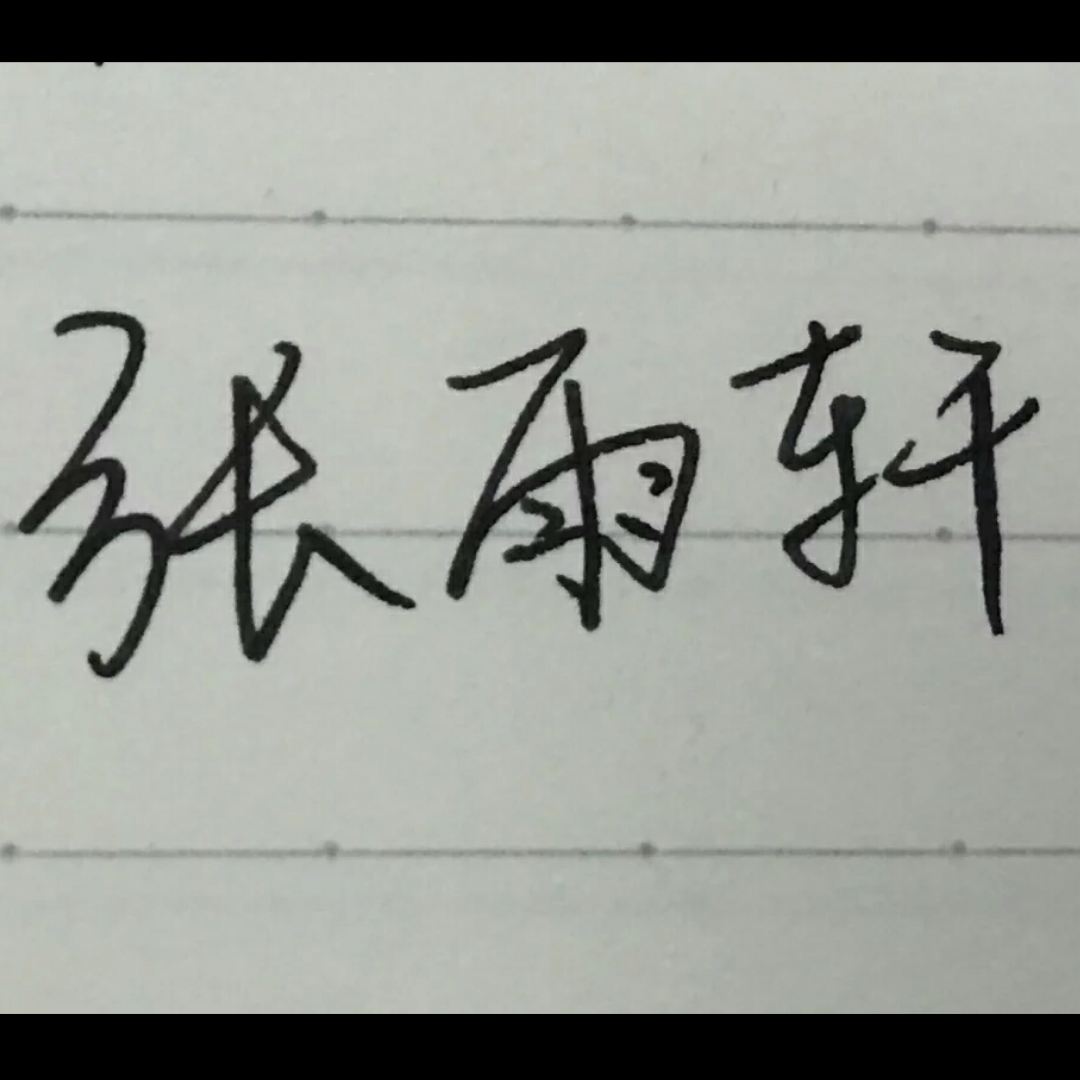 张雨轩